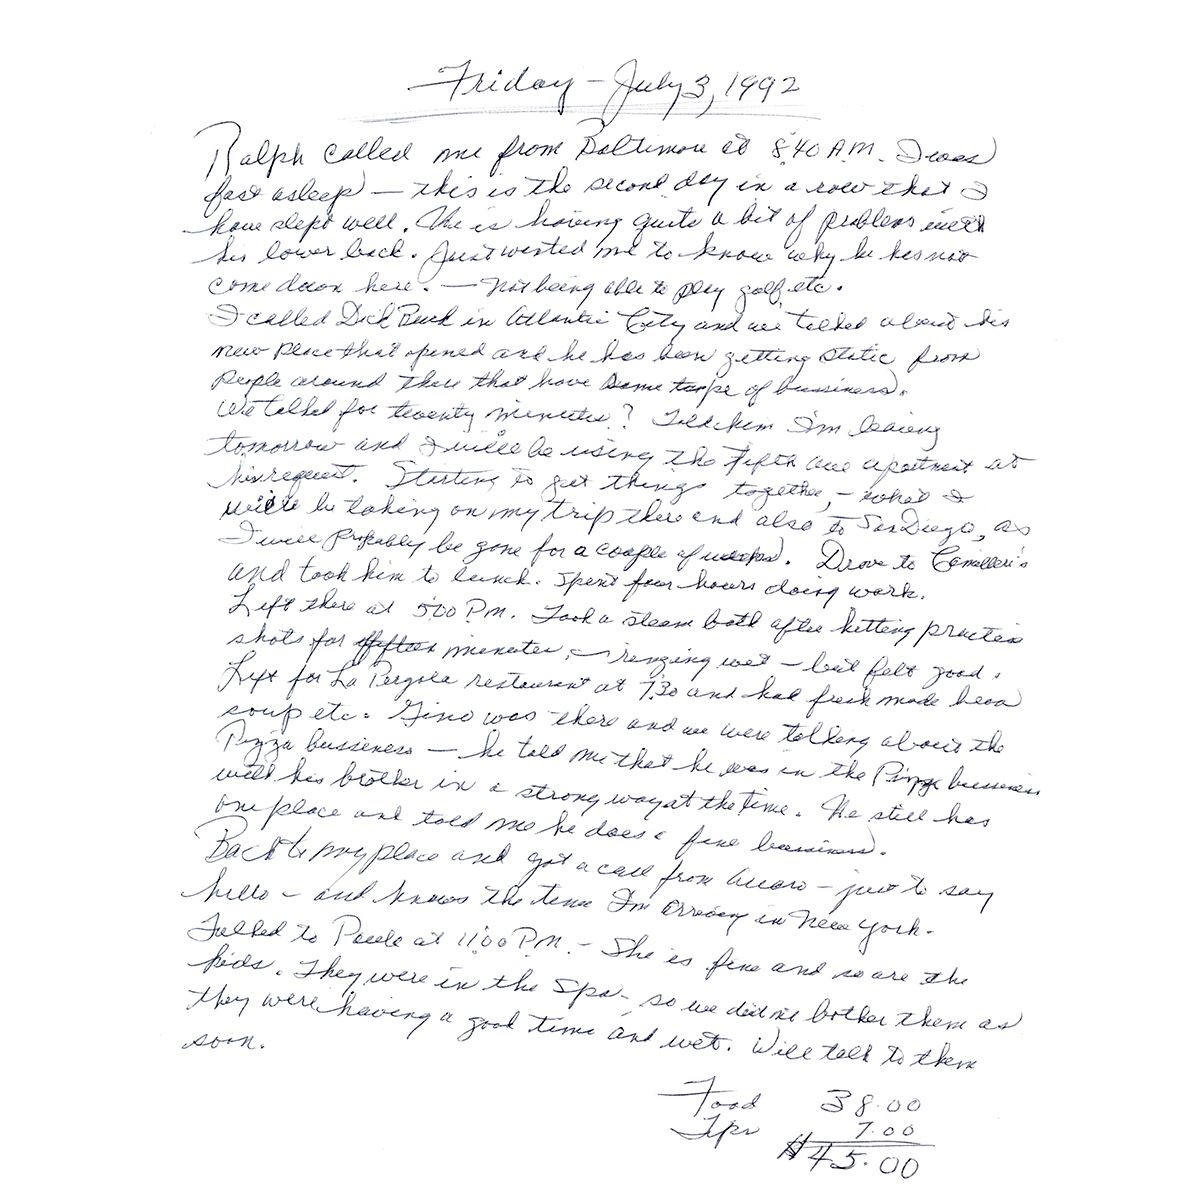 Friday - July 3, 1992
Ralph called me from Baltimore at 8:40 A.M. I was
fast asleep - this is the second day in a row that I
have slept well. He is having quite a bit of problems with
his lower back. Just wanted me to know why he has not
come down here. - Not being able to play golf, etc.
I called Dick in Atlantic City and we talked about his
new place that opened and he has been getting static from
people around there that have same type of bussiness.
We talked for twenty minutes? Told him I'm leaving
tomorrow and I will be using the Fifth ave apartment at
his request. Starting to get things together, - what I
will be taking on my trip there and also to San Diego, as
I will probably be gone for a couple of weeks. Drove to Camilleri's
and took him to lunch. Spent four hours doing work.
Left there at 5:00 P.M. Took a steam bath after hitting practice
shots for fifteen minutes, - ringing wet - but felt good.
Left for La Pergola restaurant at 7:30 and had fresh made bean
soup etc. Gino was there and we were talking about the
Pizza bussiness - he told me that he was in the Pizza bussiness
with his brother in a strong way at the time. He still has
one place and told me he does a fine bussiness.
Back to my place and got a call from - just to say
hello - and knows the time I'm arriving in New York.
Talked to Paule at 11:00 P.M. - She is fine and so are the
kids. They were in the Spa - so we didn't bother them as
they were having a good time and wet. Will talk to them
soon.
Food 38.00
Tips 7.00
$45.00